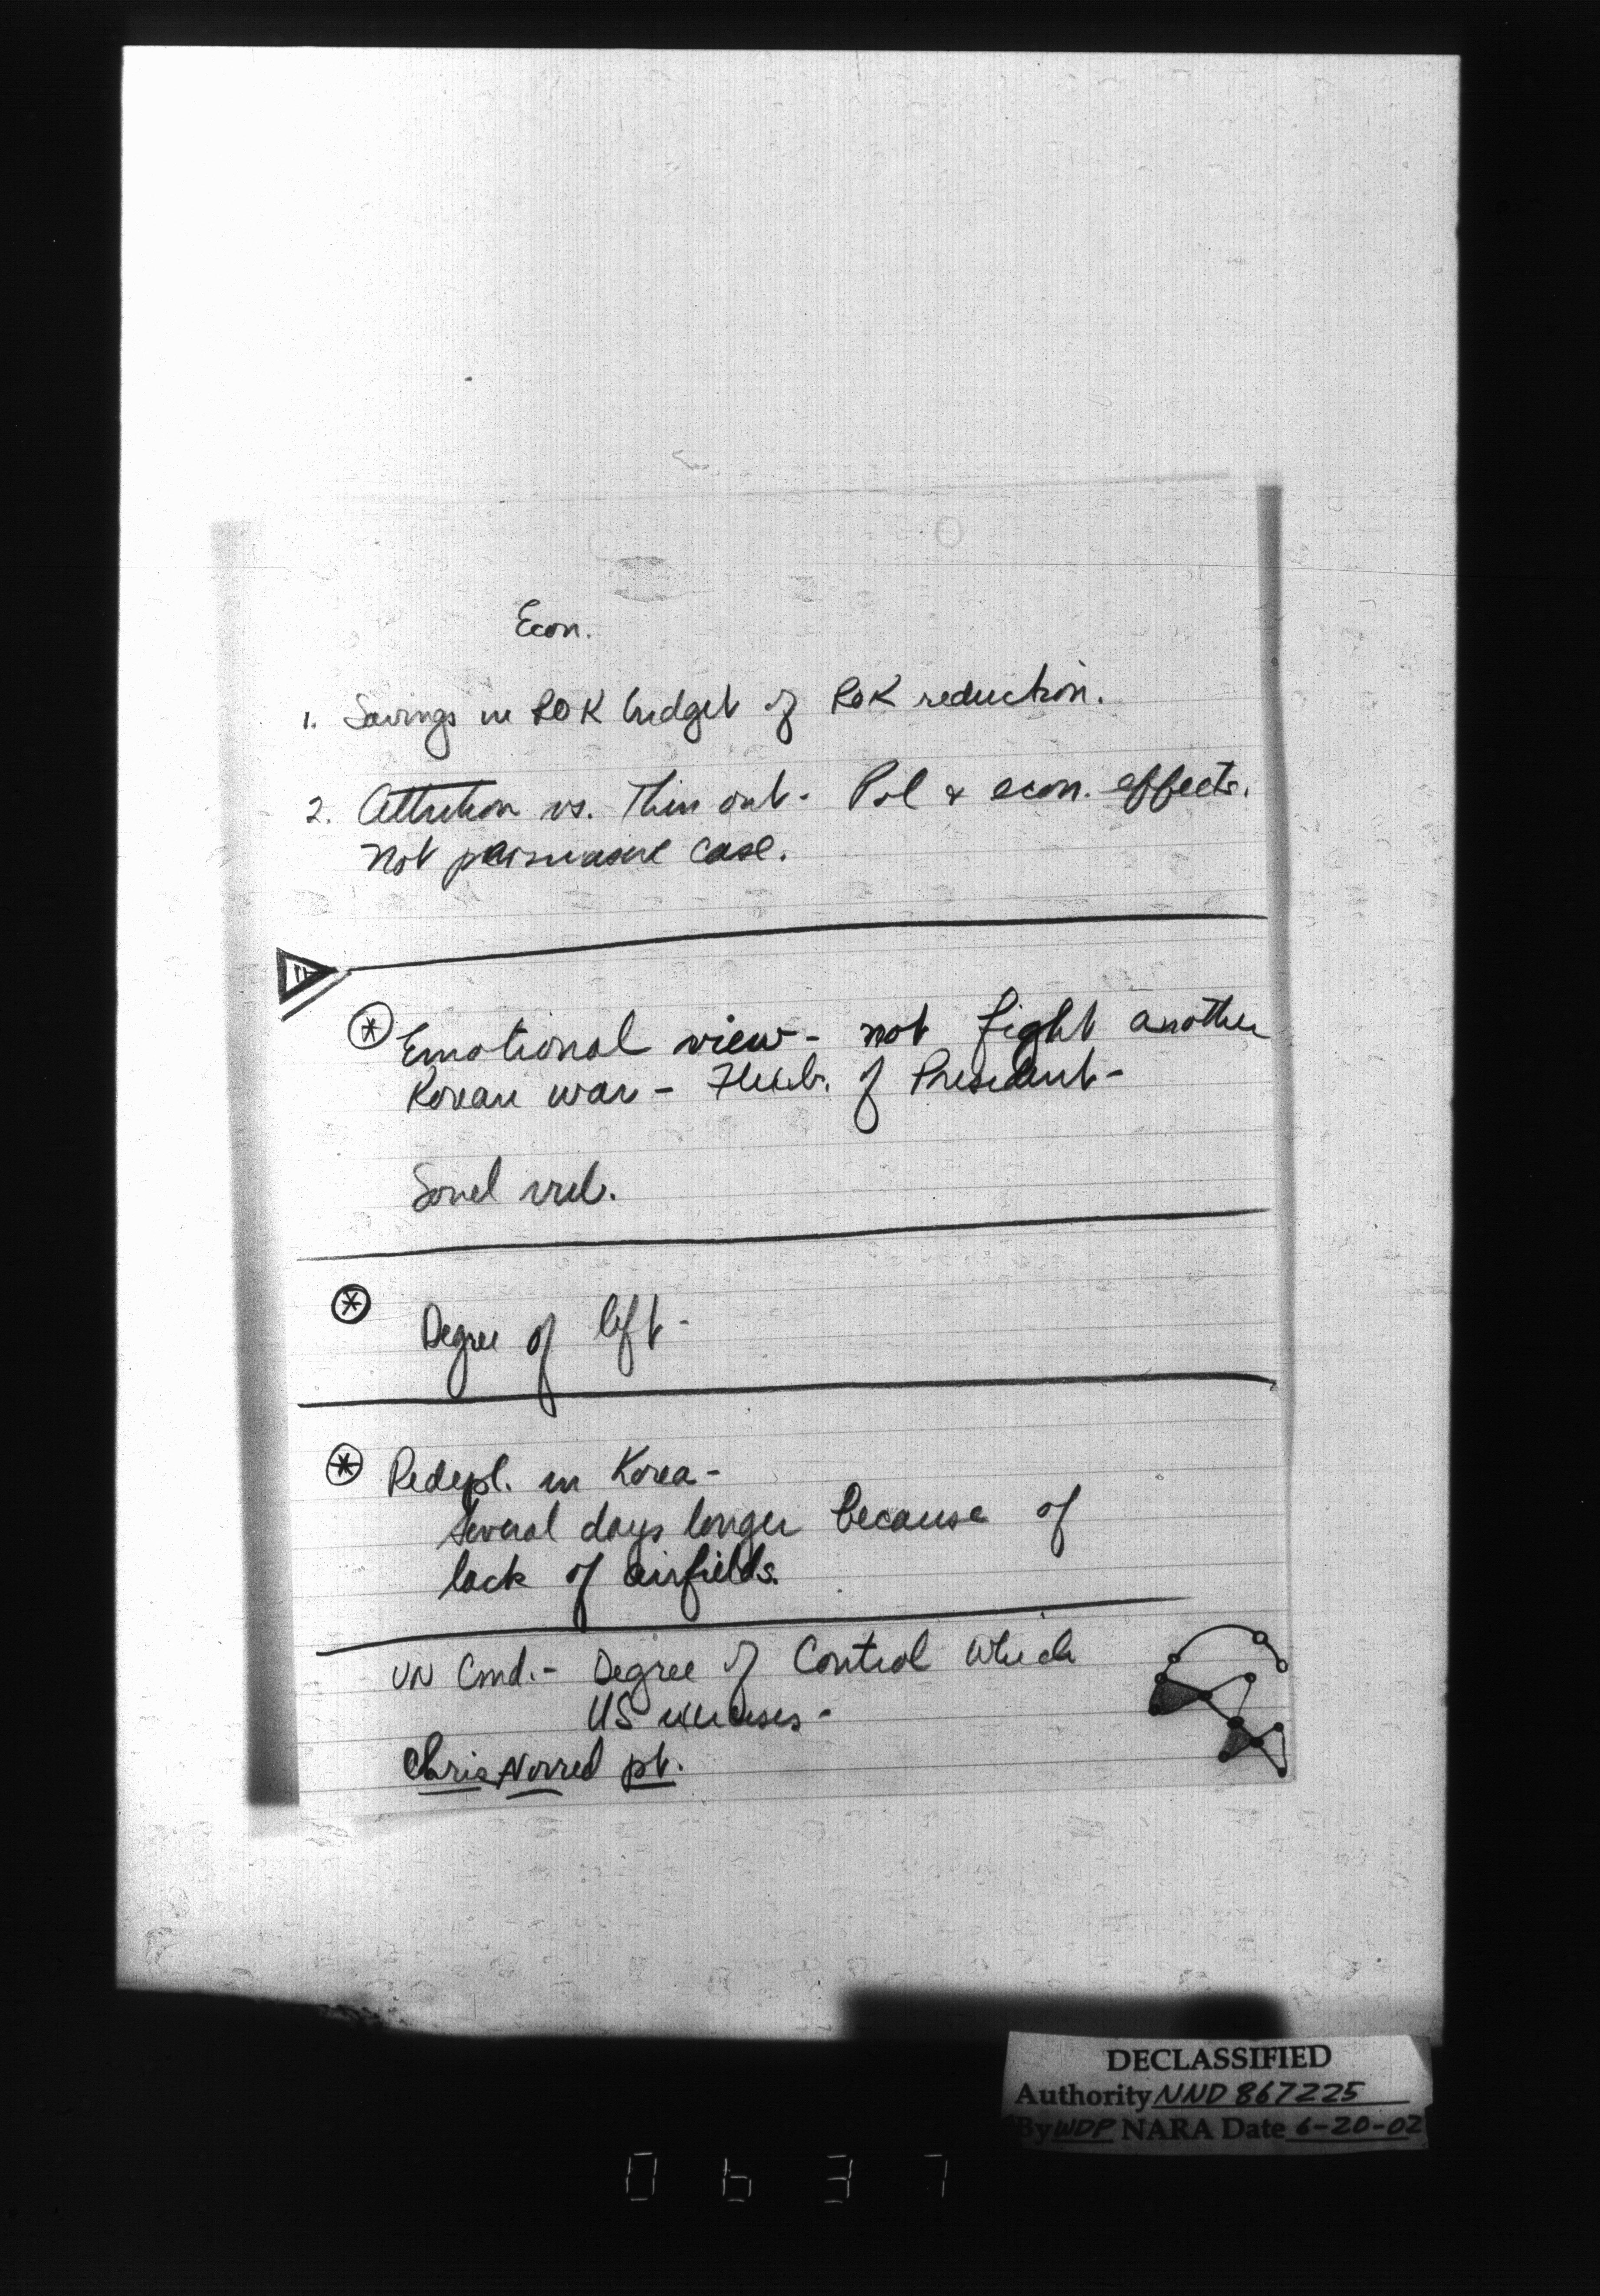 Econ.
1. Savings in ROK budget of ROK reduction.
2. Attrition vs. Thin out - Pol & econ. effects.
Not persuasive case.
* Emotional view - not fight another
Korean war - Flexib. of President -
* Degree of left -
* Redepl. in Korea -
Several days longer because of
lack of airfields.
UN Cmd. - Degree of Control Which
US exercises -
Chris Norred pt.
DECLASSIFIED
Authority NND 867225
By WDP NARA Date 6-20-02
0637